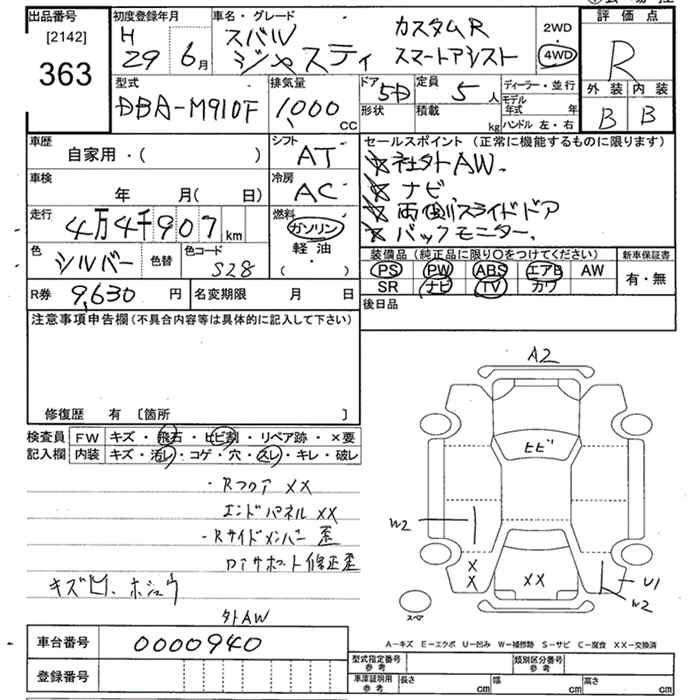 出品番号 初度登録年月 車名・グレード 2WD 評価点
[2142] H スバル カスタムR 4WD R
363 29 6月 ジャスティ スマートアシスト 外装 内装
型式 排気量 ドア 5D 定員 5人 ディーラー・並行 B B
DBA-M910F 1,000cc 形状 積載 kg モデル年式 年
ハンドル 左・右
車歴 シフト セールスポイント(正常に機能するものに限ります)
自家用・( ) AT ☆社外AW.
車検 冷房 ☆ナビ
年 月(日) AC ☆両側スライドドア
走行 4万4千907km 燃料 ☆バックモニター.
ガソリン
色 シルバー 色替 色コード S28 軽・油 装備品(純正品に限り○をつけてください) 新車保証書
( ・ ) PS PW ABS エアB AW 有・無
R券 9,630円 名変期限 月 日 SR ナビ TV カワ
注意事項申告欄(不具合内容等は具体的に記入して下さい) 後日品
修復歴 有 [箇所 ]
検査員 FW キズ・飛石・ヒビ割・リペア跡・×要
記入欄 内装 キズ・汚レ・コゲ・穴・スレ・キレ・破レ
A2
ヒビ
W2
×
×
××
U1
W2
スペア
・Rフロア ××
エンドパネル ××
・Rサイドメンバー 歪
ロアサポート修正歪
キズ凹.ホシュウ
外AW
車台番号 0000940
登録番号
A-キズ E-エクボ U-凹み W-補修跡 S-サビ C-腐食 XX-交換済
型式指定番号 参考 類別区分番号 参考
車庫証明用 参考 長さ cm 幅 cm 高さ cm